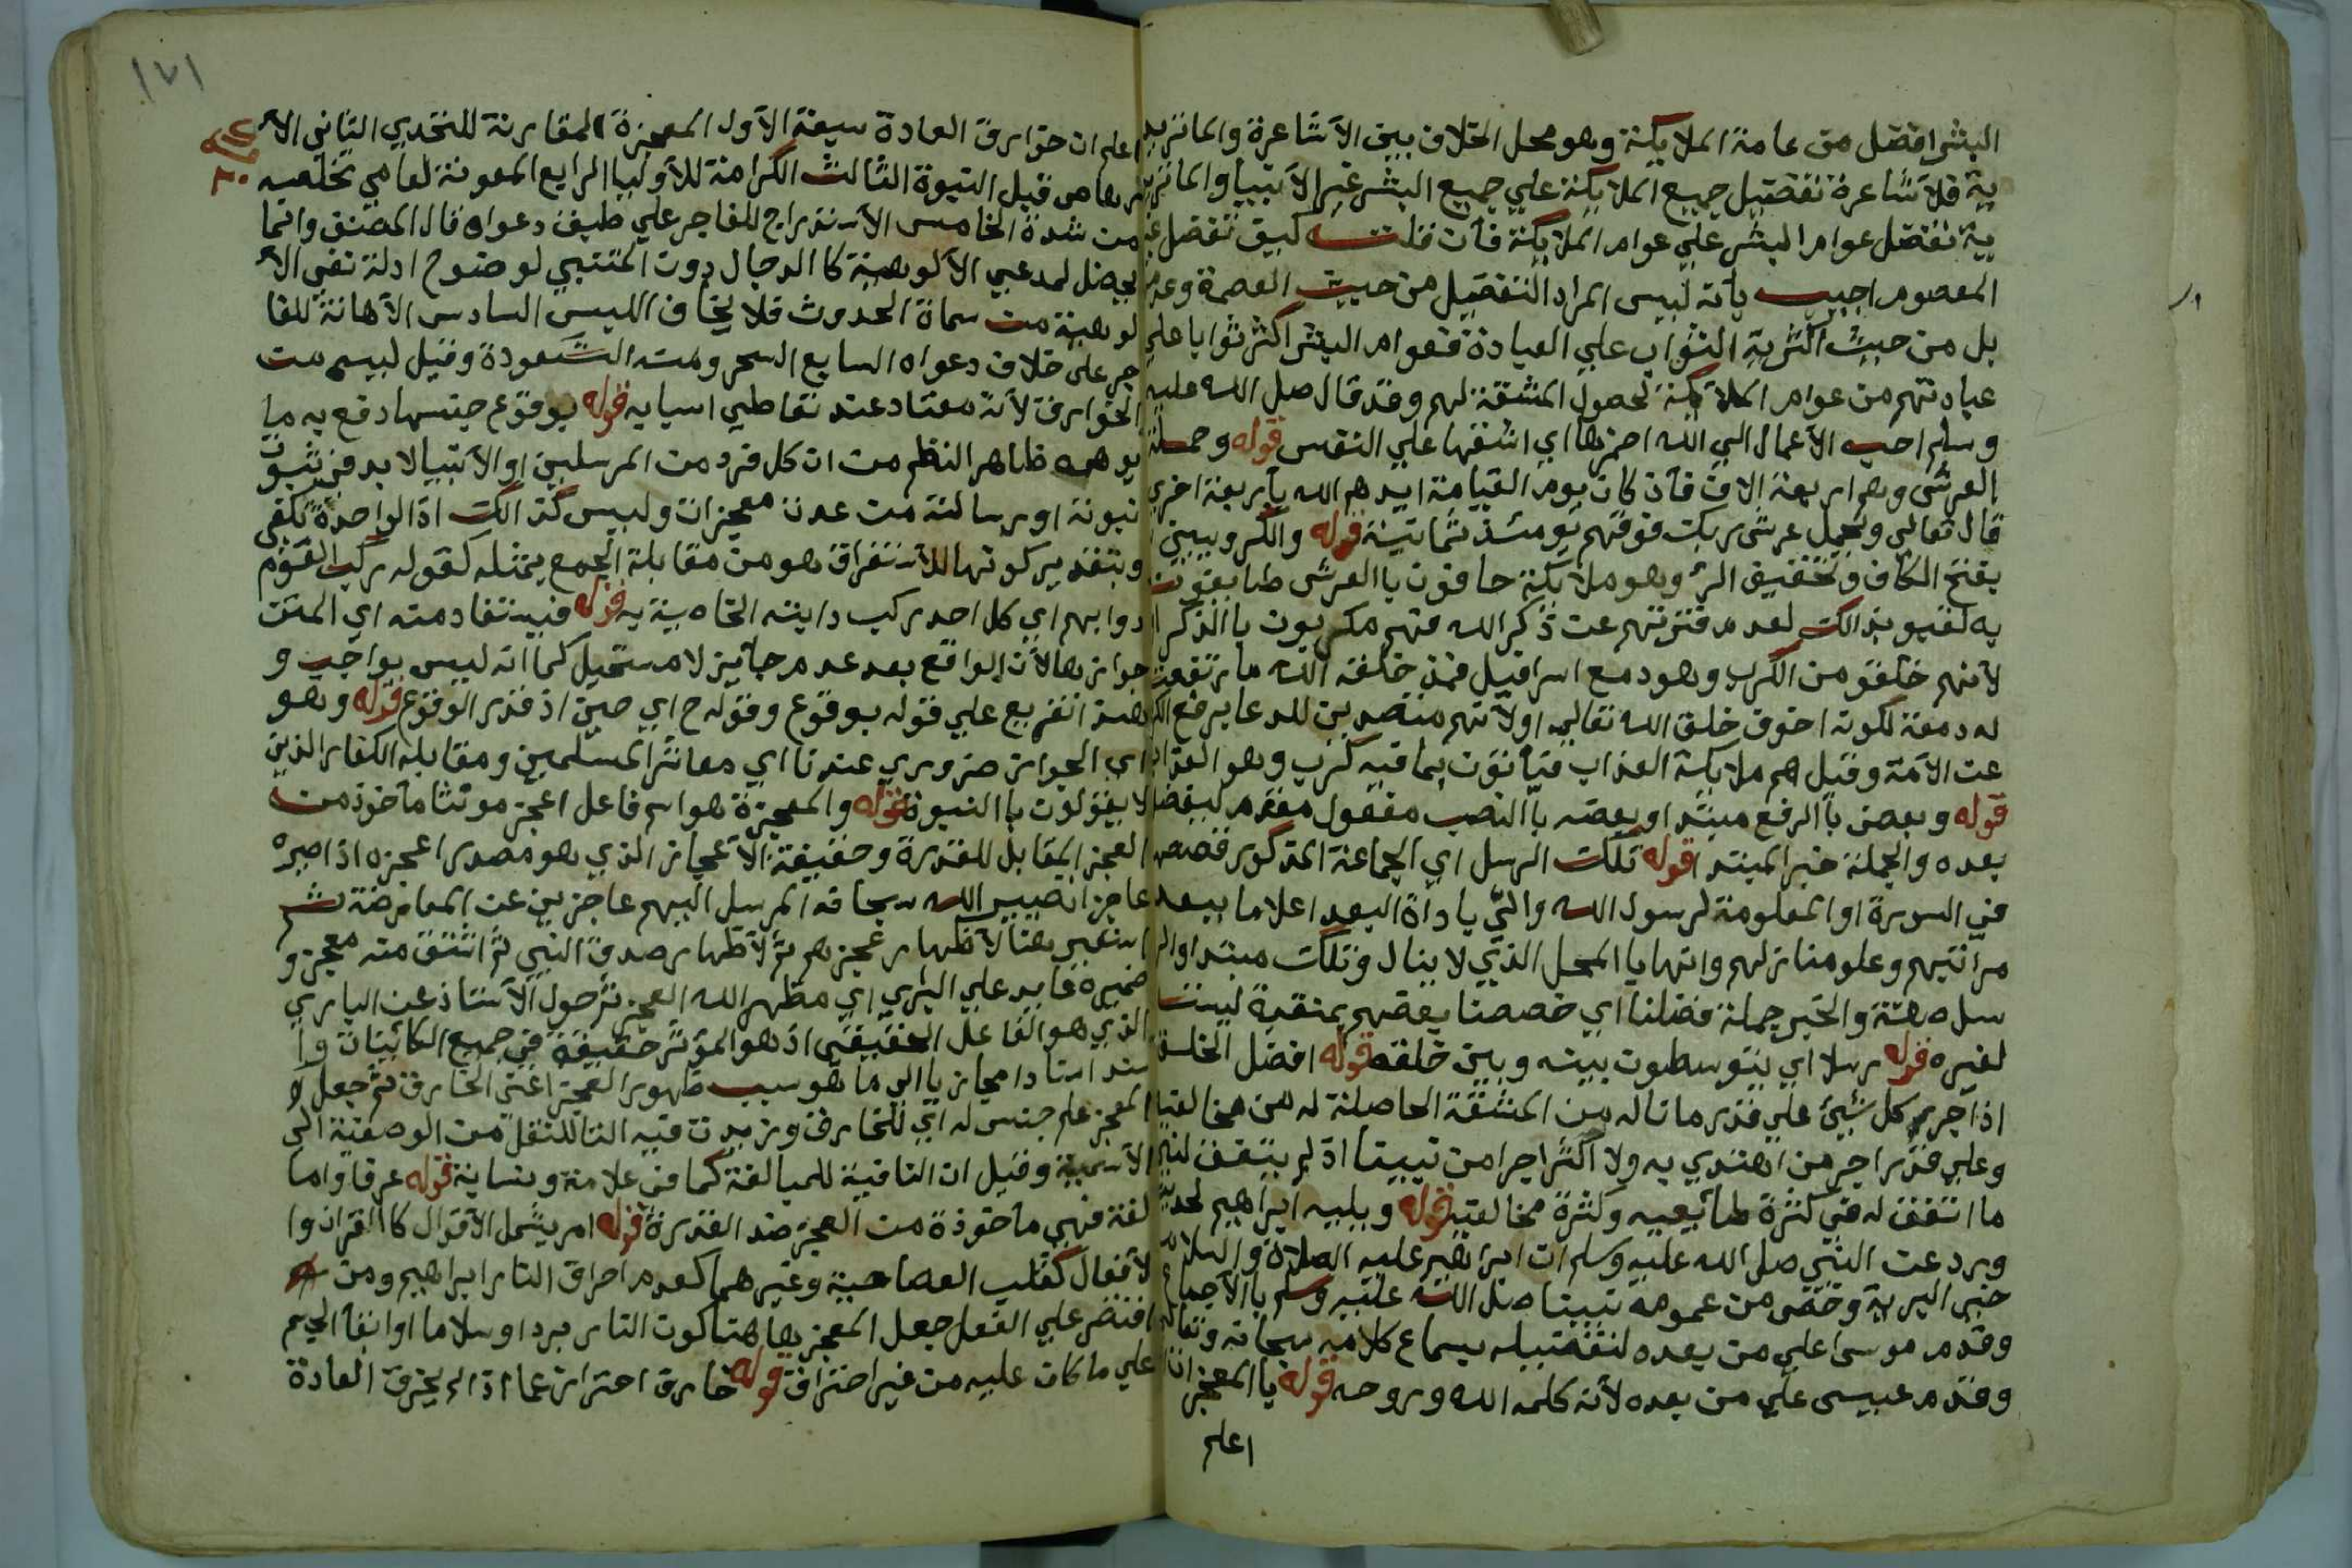 البشر افضل من عامة الملايكة وهو محل الخلاف بين الاشاعرة والماتريد
ية فالاشاعرة تفضيل جميع الملايكة علي جميع البشر غير الانبيا والماتريد
ية تفضل عوام البشر علي عوام الملايكة فان قلت كيف تفضل غير
المعصوم اجيب بانه ليس المراد التفضيل من حيث العصمة وعدمها
بل من حيث اكثرية الثواب علي العبادة فعوام البشر اكثر ثوابا علي
عبادتهم من عوام الملايكة لحصول المشقة لهم وقد قال صلى الله عليه
وسلم احب الاعمال الي الله احمزها اي اشقها علي النفس قوله وحملة
العرش وهم اربعة الان فاذا كان يوم القيامة ايدهم الله باربعة اخري
قال تعالى ويحمل عرش ربك فوقهم يومئذ ثمانية قوله والكروبيين
بفتح الكاف وتخفيف الرا وهو ملايكة حافون باالعرش طايفون
به لقبو بذالك لعدم فترتهم عن ذكر الله فهم مكربون باالذكر او
لانهم خلقو من الكرب وهود مع اسرافيل فمنذ خلقه الله ما ترتفعت
له دمعة لكونه اخوف خلق الله تعالي اولانهم متصدين للدعا برفع الكرب
عن الامة وقيل هم ملايكة العذاب فيأتون بما فيه كرب وهو العذاب
قوله وبعض باالرفع مبتدا وبعضه باالنصب مفعول مقدم ليفضل
بعده والجملة خبر المبتدا قوله تلك الرسل اي الجماعة المذكور قصصهم
في السورة او المعلومة لرسول الله واتي باداة البعد اعلاما ببعد
مراتبهم وعلو منازلهم وانها باالمحل الذي لا ينال وتلك مبتدا والر
سل صفة والخبر جملة فضلنا اي خصصنا بعضهم بمنقبة ليست
لغيره قوله رسلا اي يتوسطون بينه وبين خلقه قوله افضل الخلق
اذ اجر كل نبي علي قدر ما ناله من المشقة الحاصلة له من مخالفيه
وعلي قدر اجر من اهتدي به ولا اكثر اجرا من نبينا اذ لم يتفق لنبي
ما اتفق له في كثرة طايعيه وكثرة مخالفيه قوله ويليه ابراهيم لحديث
ورد عن النبي صلى الله عليه وسلم ان ابراهيم عليه الصلاة والسلام
خير البرية وخص من عمومه نبينا صلى الله عليه وسلم باالاجماع
وقدم موسى علي من بعده لتفضيله بسماع كلامه سبحانه وتعالي
وقدم عيسى علي من بعده لانه كلمه الله وروحه قوله باالمعجزات
اعلم
١٧١
اعلم ان خوارق العادة سبعة الاول المعجزة المقارنة للتحدي الثاني الا
رهاص قبل النبوة الثالث الكرامة للاوليا الرابع المعونة لعامي تخلصه
من شدة الخامس الاستدراج للفاجر علي طبق دعواه قال المصنف وانما
يحصل لمدعي الالوهية كا الدجال دون المتنبي لوضوح ادلة نفي الا
لوهية من سماة الحدوث فلا يخاف اللبس السادس الاهانة للفا
جر علي خلاف دعواه السابع السحر ومنه الشعوذة وقيل ليس من
الخوارق لانه معتاد عند تعاطي اسبابه قوله بوقوع جنسها دفع به ما
يوهمه ظاهر النظم من ان كل فرد من المرسلين او الانبيا لا بد في ثبوت
نبوته او رسالته من عدة معجزات وليس كذالك اذ الواحدة تكفى
وبتقدير كونها للاستغراق هو من مقابلة الجمع بمثله كقوله ركب القوم
دوابهم اي كل احد ركب دابته الخاصية به قوله فيستفاد منه اي المتن
جوازها لان الواقع بعد عدم جايز لا مستحيل كما انه ليس بواجب و
هذا تفريع علي قوله بوقوع وقوله ح اي حين اذ قدر الوقوع قوله وهو
اي الجواز ضروري عندنا اي معاشر المسلمين ومقابله الكفار الذين
لا يقولون باالنبوة قوله والمعجزة هو اسم فاعل اعجز موتثا مأخوذ من
العجز المقابل للقدرة وحقيقة الاعجاز الذي هو مصدر اعجزه اذا صيره
عاجزا تصيير الله سبحانه المرسل اليهم عاجزين عن المعارضة ثم
استعير هنا لاظهار عجزهم ثم لاظهار صدق النبي ثم اشتق منه معجز و
ضميره عايد علي الباري اي مظهر الله العجز ثم حول الاسناد عن الباري
الذي هو الفاعل الحقيقي اذ هو المؤثر حقيقة في جميع الكائنات وا
سند اسنادا مجازيا الي ما هو سبب ظهور العجز اعني الخارق ثم جعل
المعجز علم جنس له اي للخارق وزيدت فيه التا للنقل من الوصفية الي
الاسمية وقيل ان التا فيه للمبالغة كما في علامة ونسابة قوله عرفا واما
لغة فهي مأخوذة من العجز ضد القدرة قوله امر يشمل الاقوال كا القران وا
لافعال كقلب العصا حية وغيرهما كعدم احراق النار ابراهيم ومن
اقتصر علي الفعل جعل المعجز هاهنا كون النار بردا وسلاما او ابقا الجسم
علي ما كان عليه من غير احتراق قوله خارق احترازعا اذا لم يخرق العادة